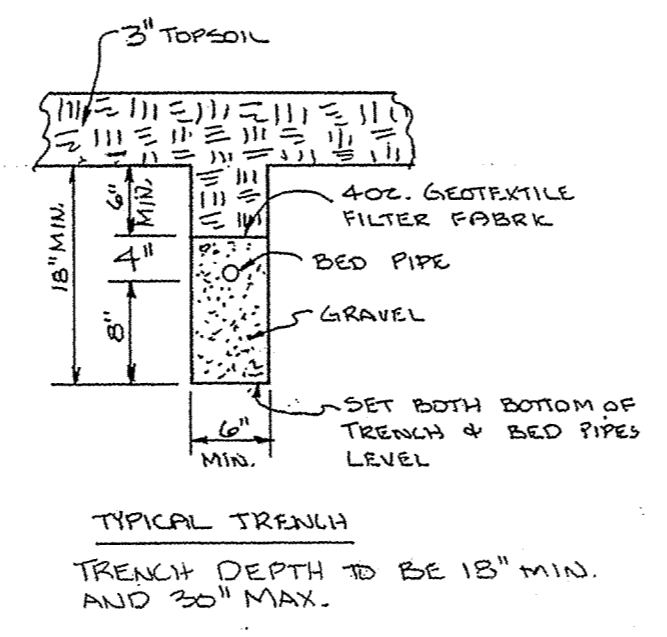 3" TOPSOIL
6" MIN.
18" MIN.
4"
8"
4 OZ. GEOTEXTILE
FILTER FABRIC
BED PIPE
GRAVEL
SET BOTH BOTTOM OF
TRENCH & BED PIPES
LEVEL
6"
MIN.
TYPICAL TRENCH
TRENCH DEPTH TO BE 18" MIN.
AND 30" MAX.